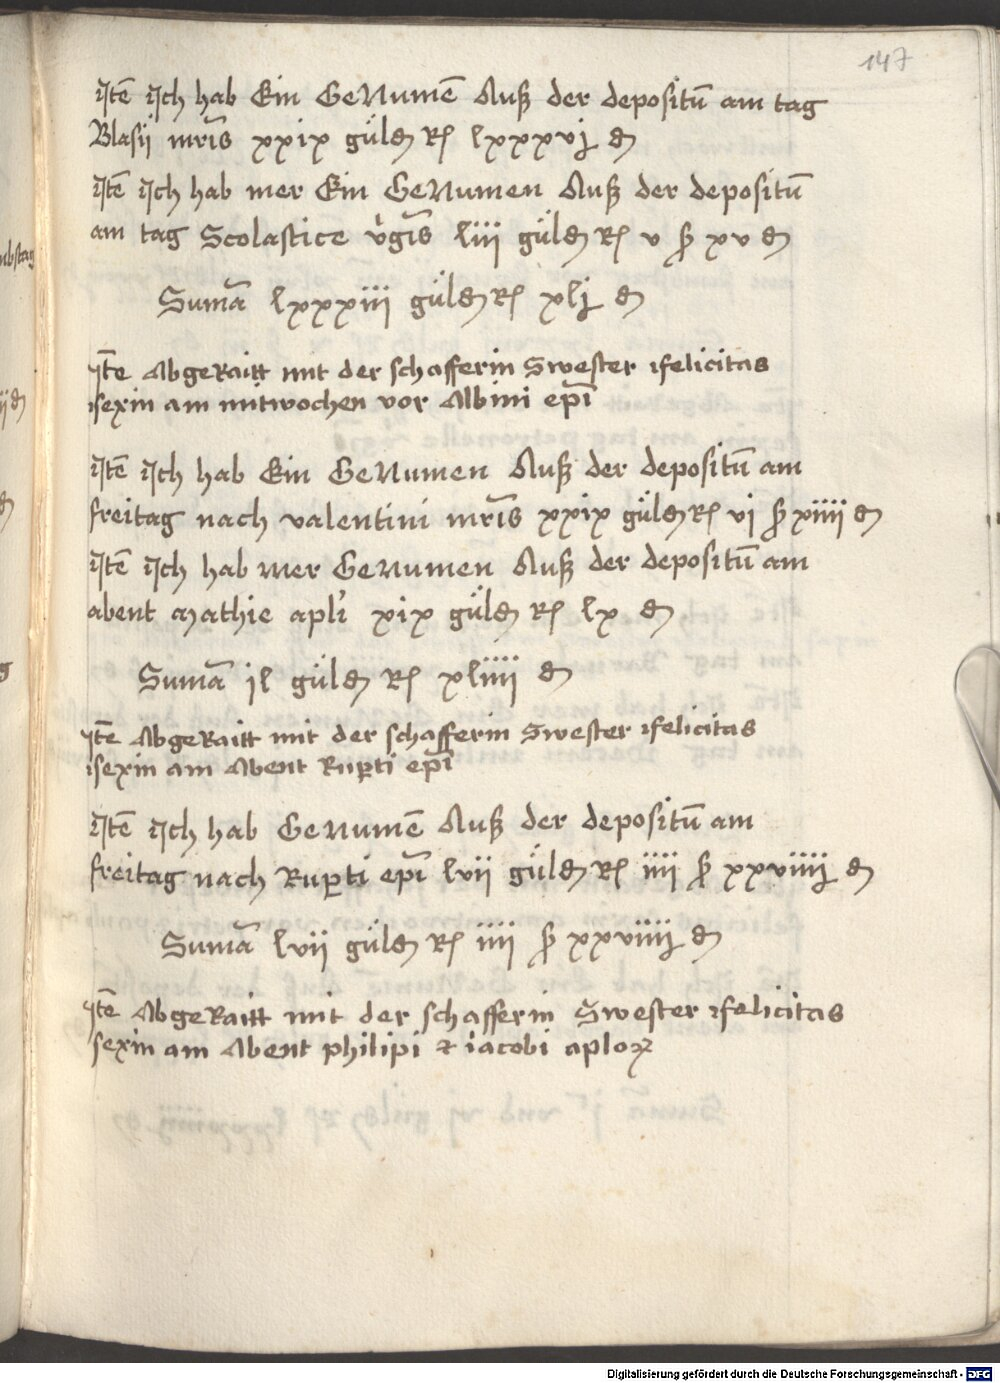 147
Jtē Jch hab Ein GeNumē Auß der depositū am tag
Blasij mr̄is xxix gúldn̄ Rh lxxxvj dn̄
Jtē Jch hab mer Ein GeNumen Auß der depositū
am tag Scolastice v̓gīs liii gúldn̄ Rh v ß xv dn̄
Sumā lxxxiii gúldn̄ Rh xlj dn̄
Jtē AbgeRaitt mit der schafferin Swester felicitas
sexin am mitwochen vor Albini epī
Jtē Jch hab Ein GeNumen Auß der depositū am
freitag nach valentini mr̄is xxix gúldn̄ Rh vi ß xiiii dn̄
Jtē Jch hab mer GeNumen Auß der depositū am
abent Mathie apl̓i xix gúldn̄ Rh lx dn̄
Sumā il gúldn̄ Rh xliiii dn̄
Jtē AbgeRaitt mit der schafferin Swester felicitas
sexin am Abent Ruꝑti epī
Jtē Jch hab GeNumē Auß der depositū am
freitag nach Ruꝑti epī lvii gúldn̄ Rh iiii ß xxviiij dn̄
Sumā lvii gúldn̄ Rh iiii ß xxviiij dn̄
Jtē AbgeRaitt mit der schafferin Swester felicitas
sexin am Abent philipi et iacobi aploꝝ
Digitalisierung gefördert durch die Deutsche Forschungsgemeinschaft - DFG